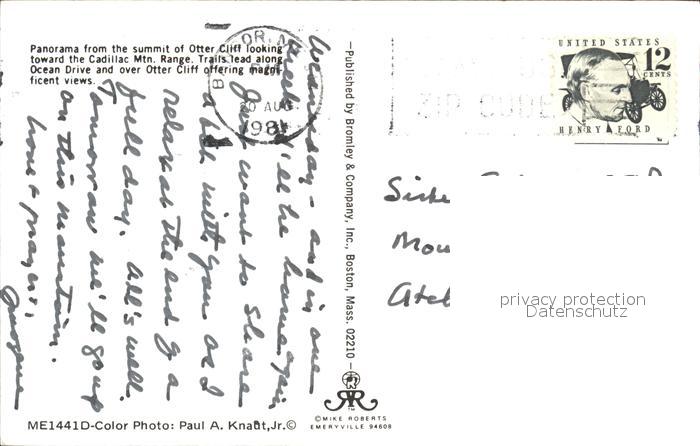 Panorama from the summit of Otter Cliff looking
toward the Cadillac Mtn. Range. Trails lead along
Ocean Drive and over Otter Cliff offering magni-
ficent views.
Wednesday - and in one
week I'll be home again,
Just want to share
a bit with you as I
relax at the end of a
full day. All's well.
Tomorrow we'll go up
on this mountain.
love & prayers,
—Published by Bromley & Company, Inc., Boston, Mass. 02210—
B OR, M
20 AUG
198
ZIP CODE
UNITED STATES
12
CENTS
HENRY FORD
Siste
Mou
Atch
privacy protection
Datenschutz
©MIKE ROBERTS
EMERYVILLE 94608
ME1441D-Color Photo: Paul A. Knaut,Jr.©